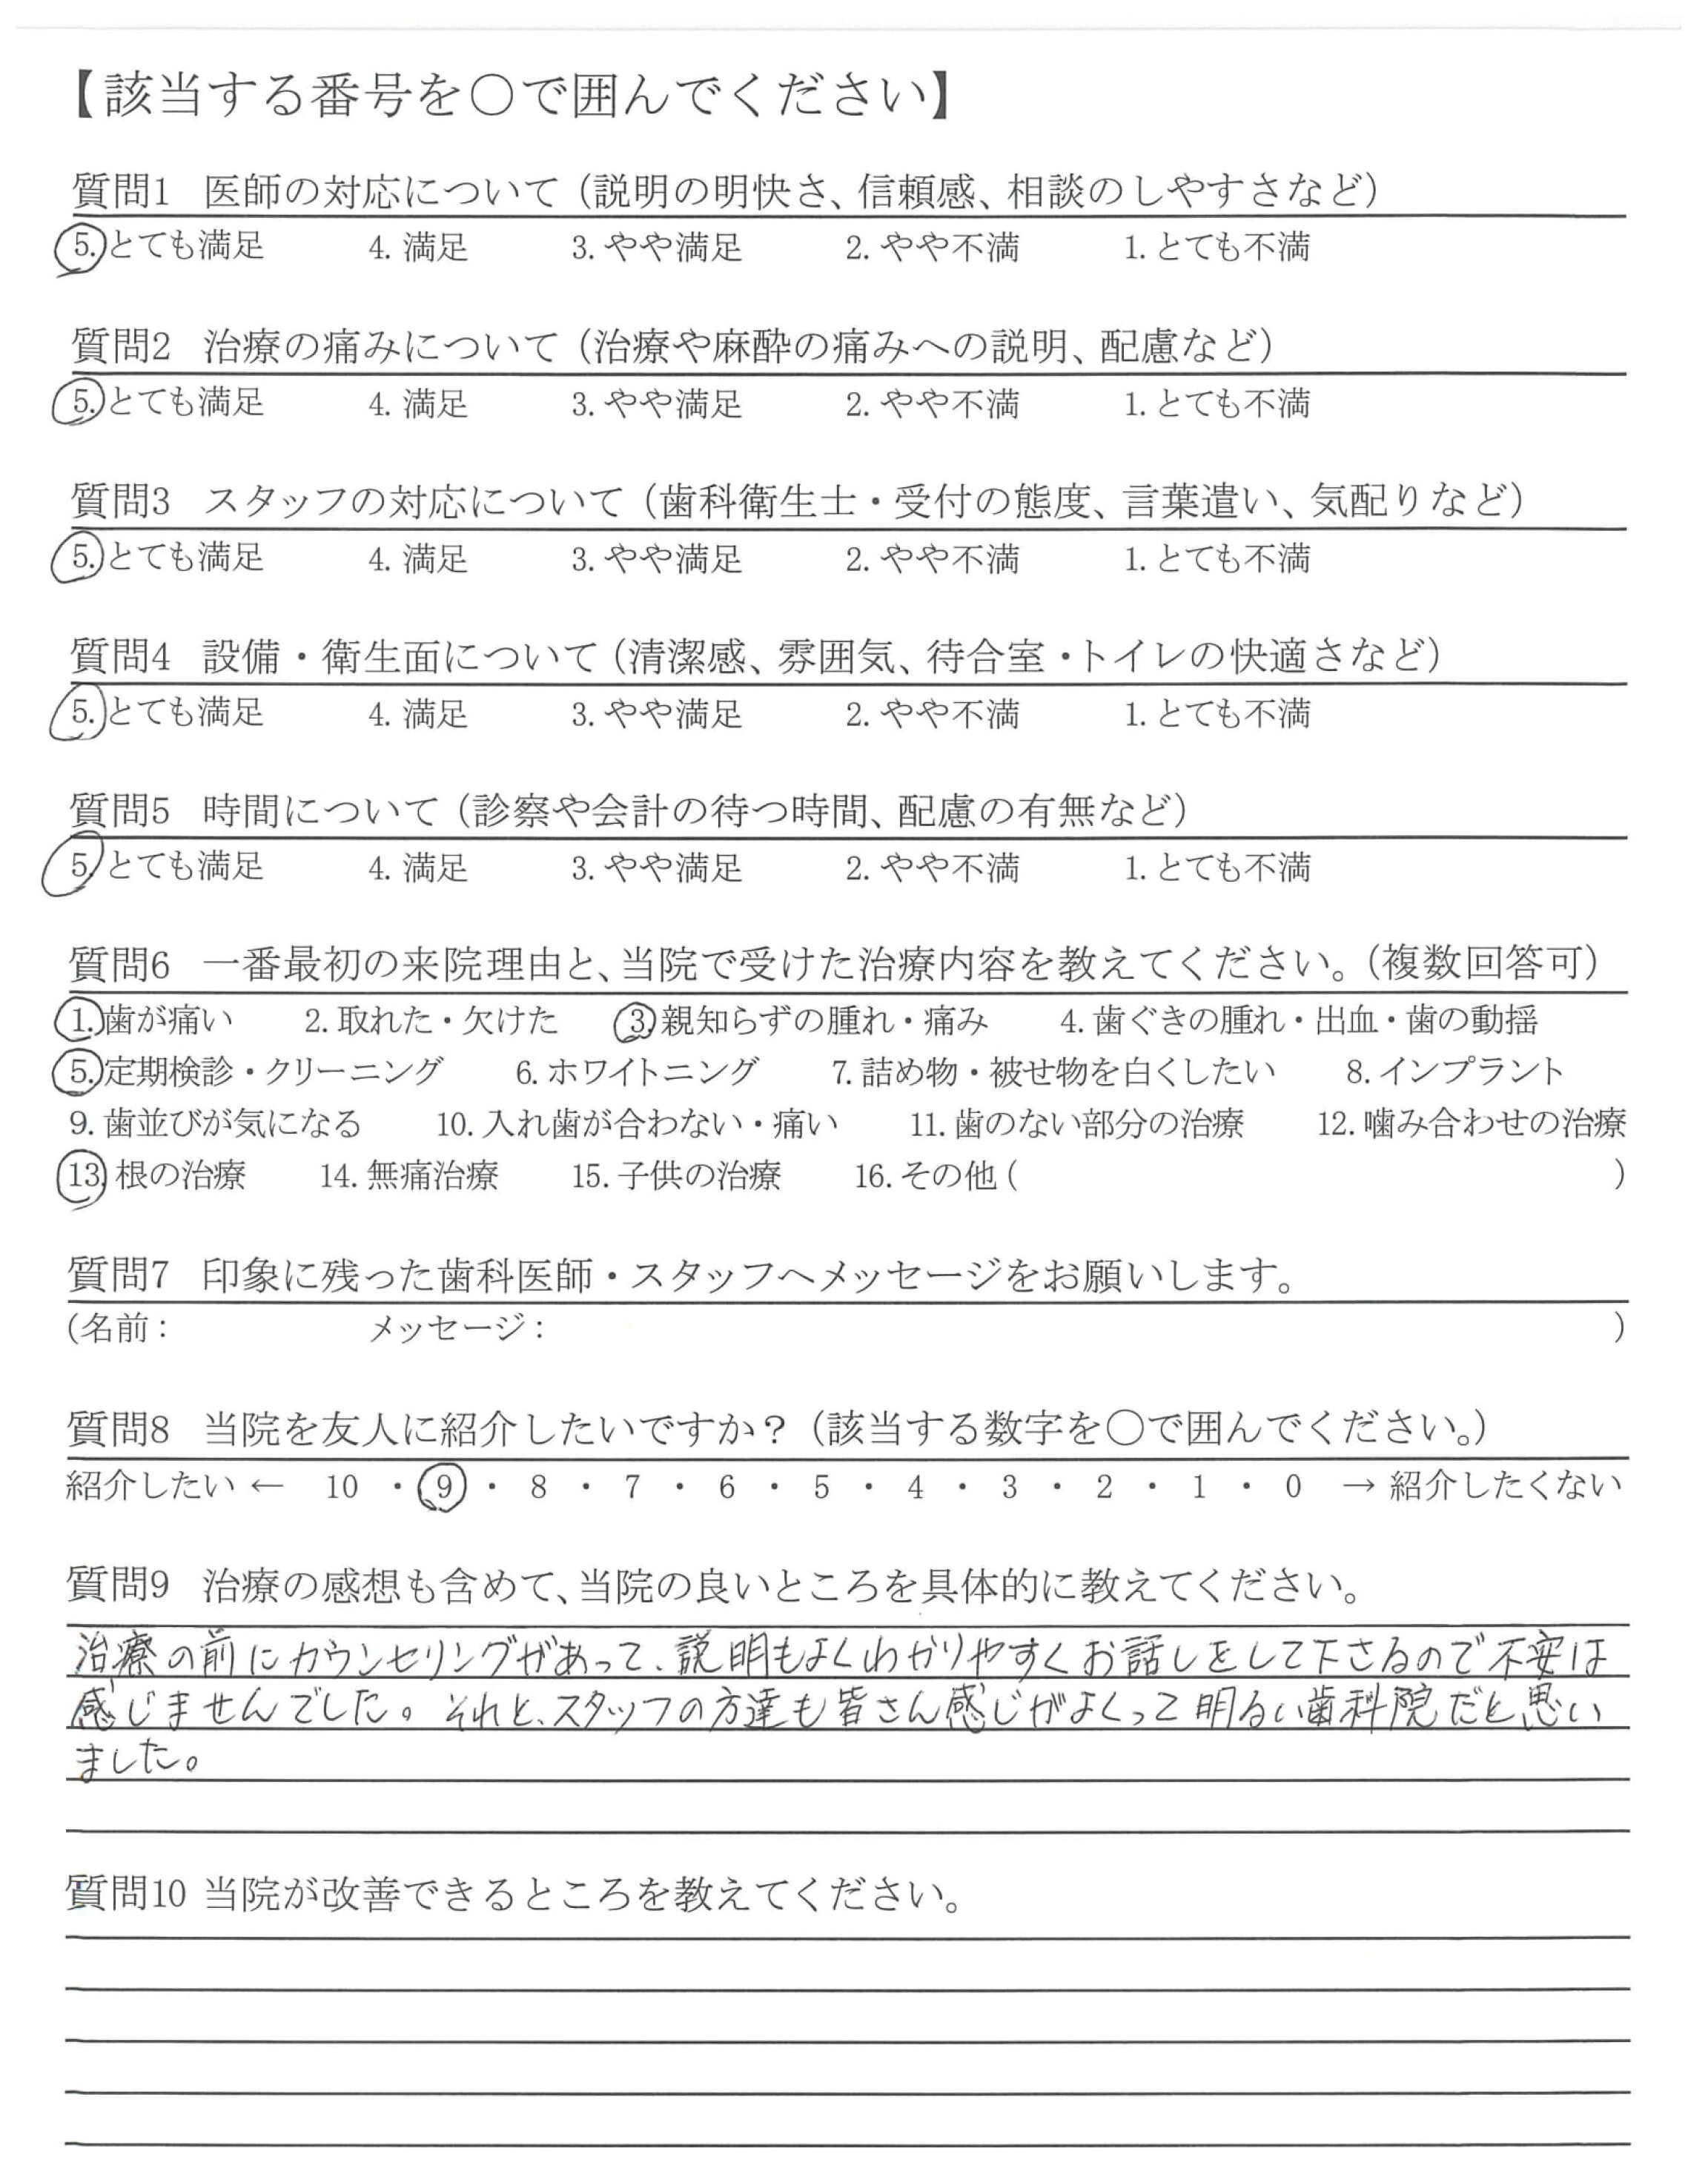 【該当する番号を〇で囲んでください】
質問1 医師の対応について（説明の明快さ、信頼感、相談のしやすさなど）
5.とても満足 4. 満足 3. やや満足 2. やや不満 1. とても不満
質問2 治療の痛みについて（治療や麻酔の痛みへの説明、配慮など）
5.とても満足 4. 満足 3. やや満足 2. やや不満 1. とても不満
質問3 スタッフの対応について（歯科衛生士・受付の態度、言葉遣い、気配りなど）
5.とても満足 4. 満足 3. やや満足 2. やや不満 1. とても不満
質問4 設備・衛生面について（清潔感、雰囲気、待合室・トイレの快適さなど）
5.とても満足 4. 満足 3. やや満足 2. やや不満 1. とても不満
質問5 時間について（診察や会計の待つ時間、配慮の有無など）
5.とても満足 4. 満足 3. やや満足 2. やや不満 1. とても不満
質問6 一番最初の来院理由と、当院で受けた治療内容を教えてください。（複数回答可）
1.歯が痛い 2. 取れた・欠けた 3.親知らずの腫れ・痛み 4. 歯ぐきの腫れ・出血・歯の動揺
5.定期検診・クリーニング 6. ホワイトニング 7. 詰め物・被せ物を白くしたい 8. インプラント
9. 歯並びが気になる 10. 入れ歯が合わない・痛い 11. 歯のない部分の治療 12. 噛み合わせの治療
13. 根の治療 14. 無痛治療 15. 子供の治療 16. その他 ( )
質問7 印象に残った歯科医師・スタッフへメッセージをお願いします。
(名前： メッセージ： )
質問8 当院を友人に紹介したいですか？（該当する数字を〇で囲んでください。）
紹介したい ← 10 ・ 9 ・ 8 ・ 7 ・ 6 ・ 5 ・ 4 ・ 3 ・ 2 ・ 1 ・ 0 → 紹介したくない
質問9 治療の感想も含めて、当院の良いところを具体的に教えてください。
治療の前にカウンセリングがあって、説明もよくわかりやすくお話しをして下さるので不安は
感じませんでした。それと、スタッフの方達も皆さん感じがよくって明るい歯科院だと思い
ました。
質問10 当院が改善できるところを教えてください。